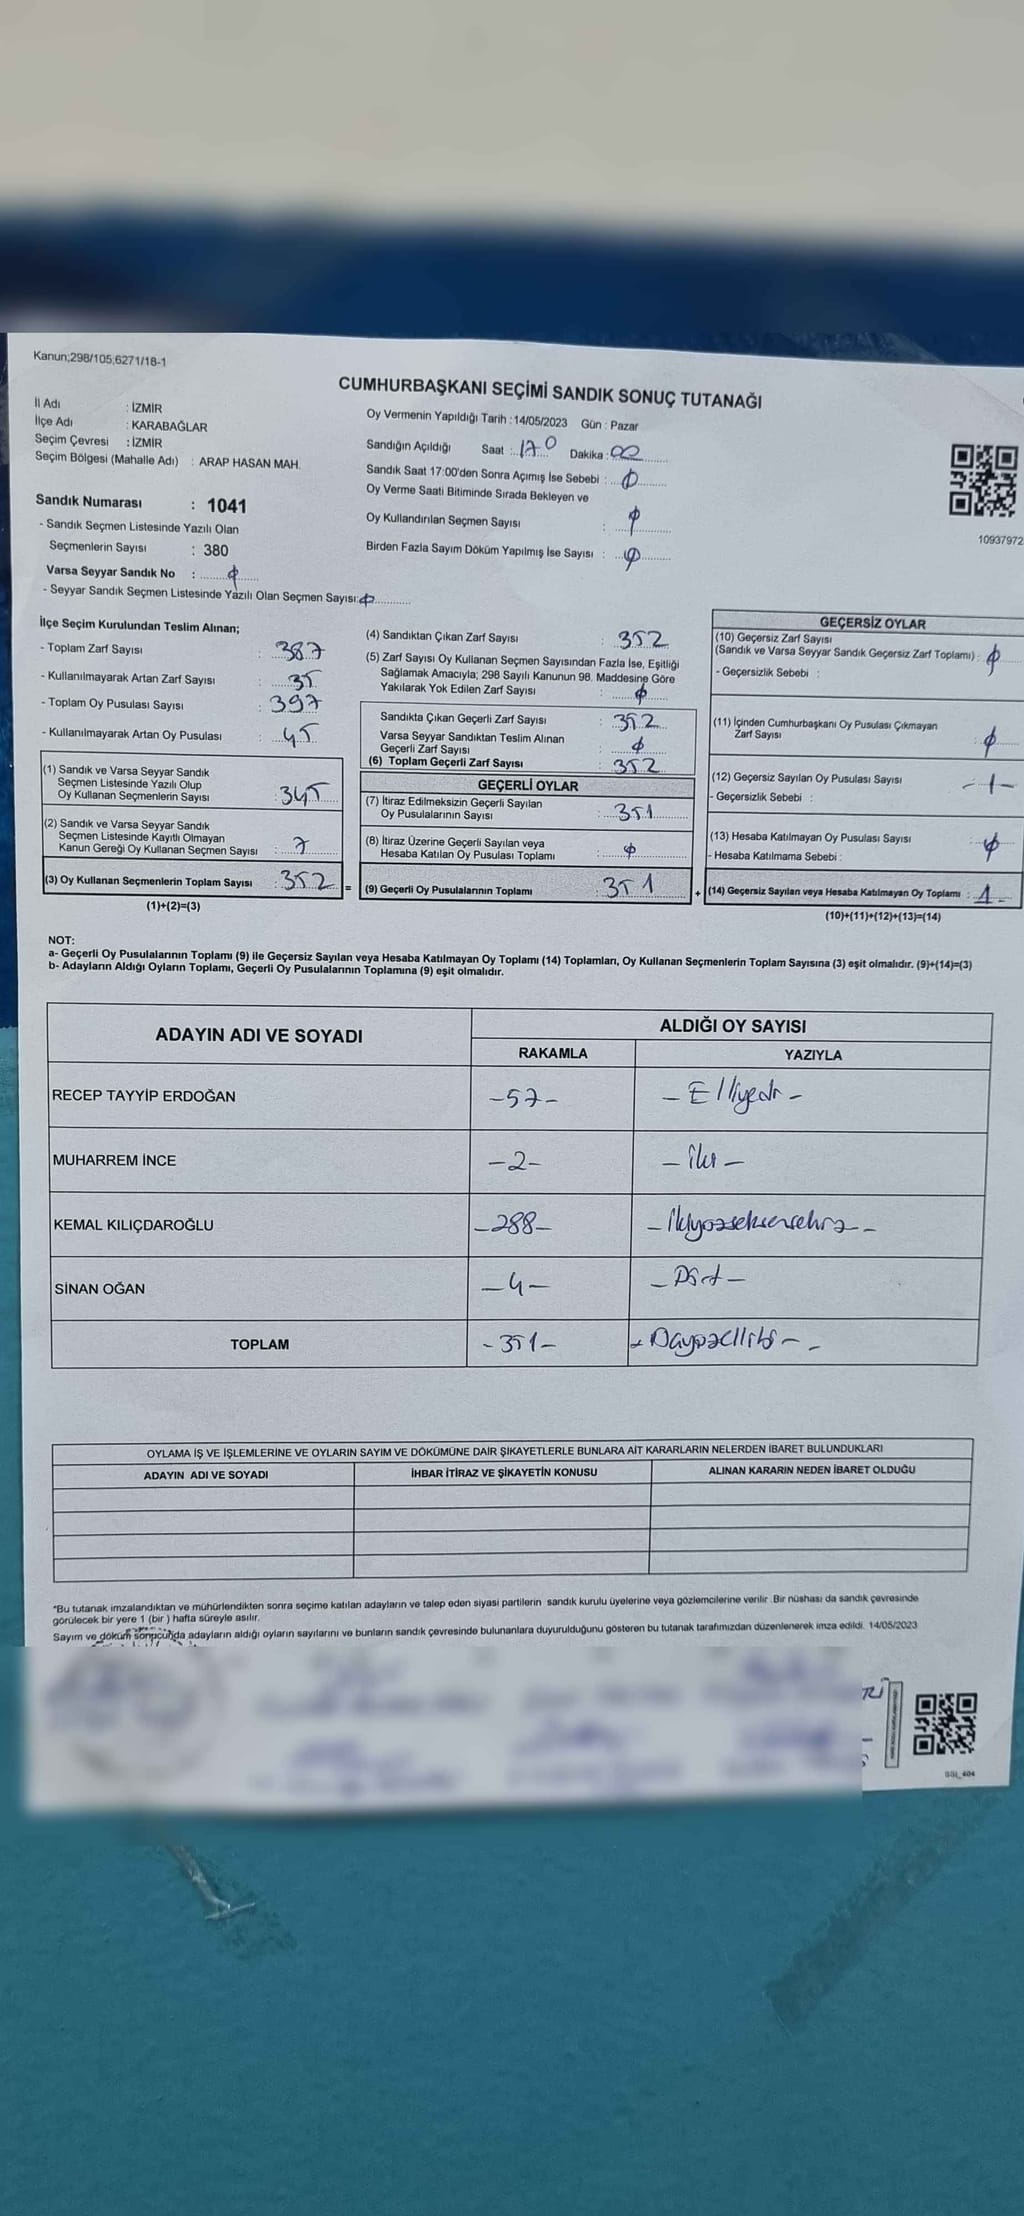 Kanun;298/105,6271/18-1
CUMHURBAŞKANI SEÇİMİ SANDIK SONUÇ TUTANAĞI
İl Adı : İZMİR
İlçe Adı : KARABAĞLAR
Seçim Çevresi : İZMİR
Seçim Bölgesi (Mahalle Adı) : ARAP HASAN MAH.
Sandık Numarası : 1041
- Sandık Seçmen Listesinde Yazılı Olan
Seçmenlerin Sayısı : 380
Varsa Seyyar Sandık No : φ
- Seyyar Sandık Seçmen Listesinde Yazılı Olan Seçmen Sayısı: φ
Oy Vermenin Yapıldığı Tarih : 14/05/2023 Gün : Pazar
Sandığın Açıldığı Saat : 17⁰ Dakika : 00
Sandık Saat 17:00'den Sonra Açımış İse Sebebi : φ
Oy Verme Saati Bitiminde Sırada Bekleyen ve
Oy Kullandırılan Seçmen Sayısı : φ
Birden Fazla Sayım Döküm Yapılmış İse Sayısı : φ
10937972
İlçe Seçim Kurulundan Teslim Alınan;
- Toplam Zarf Sayısı : 387
- Kullanılmayarak Artan Zarf Sayısı : 35
- Toplam Oy Pusulası Sayısı : 397
- Kullanılmayarak Artan Oy Pusulası : 45
(1) Sandık ve Varsa Seyyar Sandık
Seçmen Listesinde Yazılı Olup
Oy Kullanan Seçmenlerin Sayısı : 345
(2) Sandık ve Varsa Seyyar Sandık
Seçmen Listesinde Kayıtlı Olmayan
Kanun Gereği Oy Kullanan Seçmen Sayısı : 7
(3) Oy Kullanan Seçmenlerin Toplam Sayısı : 352
(1)+(2)=(3)
(4) Sandıktan Çıkan Zarf Sayısı : 352
(5) Zarf Sayısı Oy Kullanan Seçmen Sayısından Fazla İse, Eşitliği
Sağlamak Amacıyla; 298 Sayılı Kanunun 98. Maddesine Göre
Yakılarak Yok Edilen Zarf Sayısı : φ
Sandıkta Çıkan Geçerli Zarf Sayısı : 352
Varsa Seyyar Sandıktan Teslim Alınan
Geçerli Zarf Sayısı : φ
(6) Toplam Geçerli Zarf Sayısı : 352
GEÇERLİ OYLAR
(7) İtiraz Edilmeksizin Geçerli Sayılan
Oy Pusulalarının Sayısı : 351
(8) İtiraz Üzerine Geçerli Sayılan veya
Hesaba Katılan Oy Pusulası Toplamı : φ
= (9) Geçerli Oy Pusulalarının Toplamı : 351 +
GEÇERSİZ OYLAR
(10) Geçersiz Zarf Sayısı
(Sandık ve Varsa Seyyar Sandık Geçersiz Zarf Toplamı) : φ
- Geçersizlik Sebebi :
(11) İçinden Cumhurbaşkanı Oy Pusulası Çıkmayan
Zarf Sayısı : φ
(12) Geçersiz Sayılan Oy Pusulası Sayısı : -1-
- Geçersizlik Sebebi :
(13) Hesaba Katılmayan Oy Pusulası Sayısı : φ
- Hesaba Katılmama Sebebi :
(14) Geçersiz Sayılan veya Hesaba Katılmayan Oy Toplamı : 1-
(10)+(11)+(12)+(13)=(14)
NOT:
a- Geçerli Oy Pusulalarının Toplamı (9) ile Geçersiz Sayılan veya Hesaba Katılmayan Oy Toplamı (14) Toplamları, Oy Kullanan Seçmenlerin Toplam Sayısına (3) eşit olmalıdır. (9)+(14)=(3)
b- Adayların Aldığı Oyların Toplamı, Geçerli Oy Pusulalarının Toplamına (9) eşit olmalıdır.
ADAYIN ADI VE SOYADI
ALDIĞI OY SAYISI
RAKAMLA YAZIYLA
RECEP TAYYİP ERDOĞAN -57- - Elliyedi -
MUHARREM İNCE -2- - iki -
KEMAL KILIÇDAROĞLU -288- - İkiyüzseksensekiz -
SİNAN OĞAN -4- - Dört -
TOPLAM -351- - Üçyüzellibir - -
OYLAMA İŞ VE İŞLEMLERİNE VE OYLARIN SAYIM VE DÖKÜMÜNE DAİR ŞİKAYETLERLE BUNLARA AİT KARARLARIN NELERDEN İBARET BULUNDUKLARI
ADAYIN ADI VE SOYADI İHBAR İTİRAZ VE ŞİKAYETİN KONUSU ALINAN KARARIN NEDEN İBARET OLDUĞU
*Bu tutanak imzalandıktan ve mühürlendikten sonra seçime katılan adayların ve talep eden siyasi partilerin sandık kurulu üyelerine veya gözlemcilerine verilir. Bir nüshası da sandık çevresinde
görülecek bir yere 1 (bir ) hafta süreyle asılır.
Sayım ve döküm sonucunda adayların aldığı oyların sayılarını ve bunların sandık çevresinde bulunanlara duyurulduğunu gösteren bu tutanak tarafımızdan düzenlenerek imza edildi. 14/05/2023